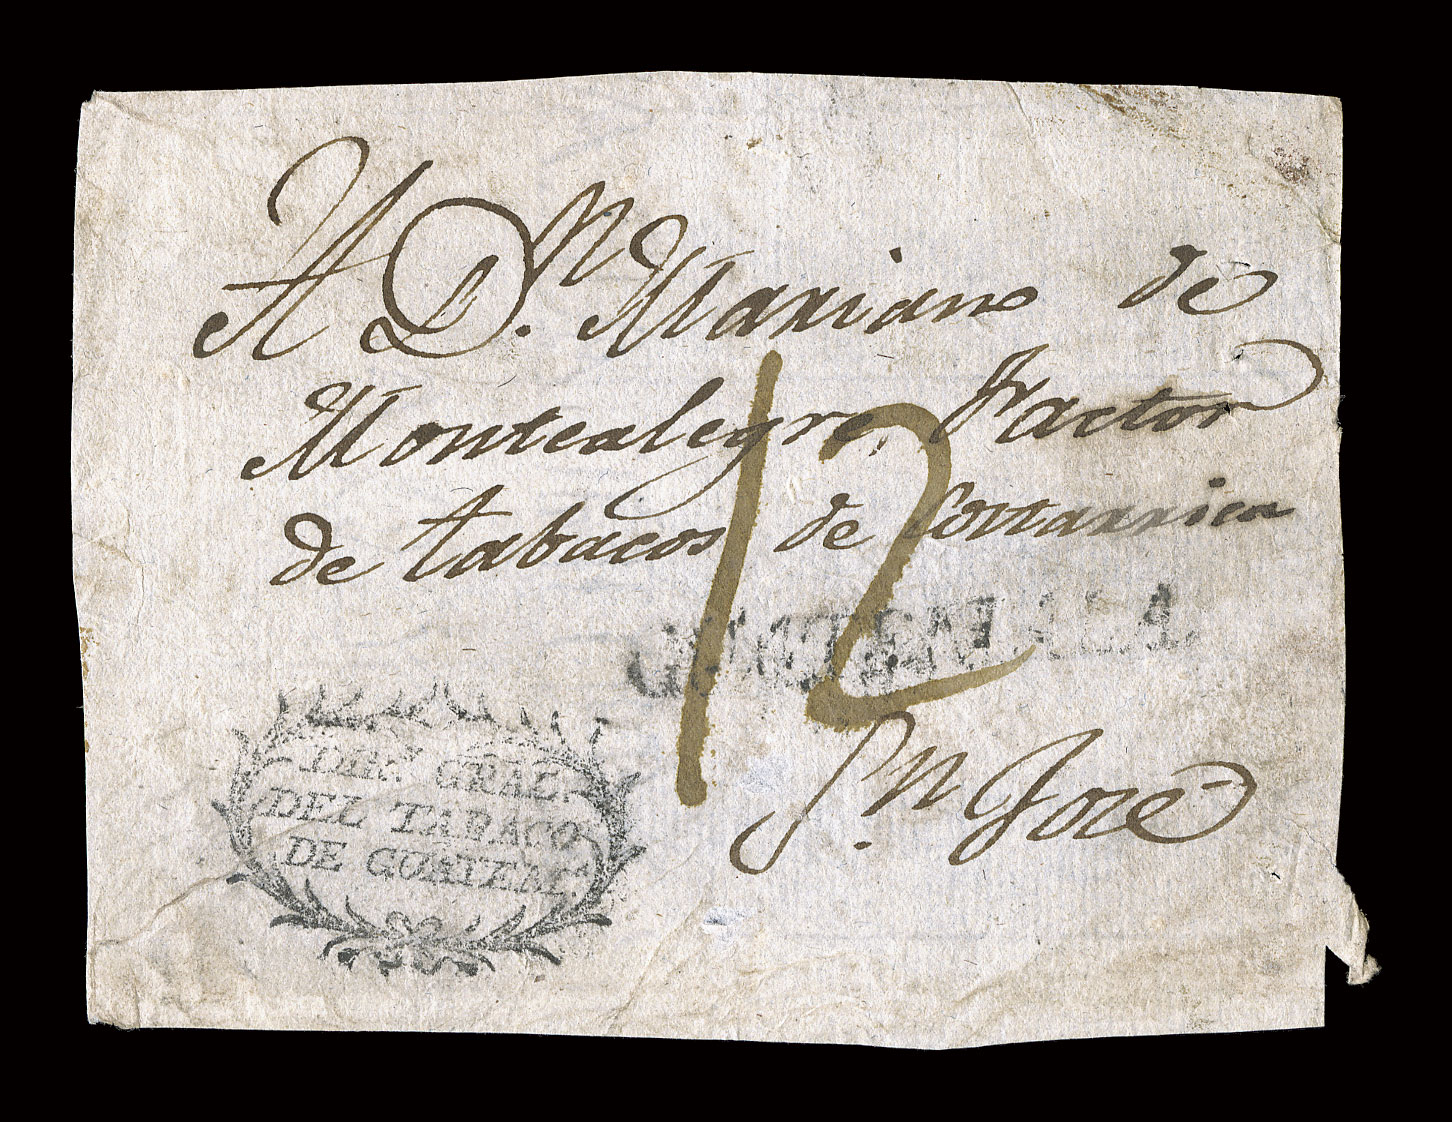 A D.n Mariano de
Montealegre, Factor
de tabacos de Costarrica
12
GUATEMALA
S.n José
DEL TABACO
DE GUATEM.A